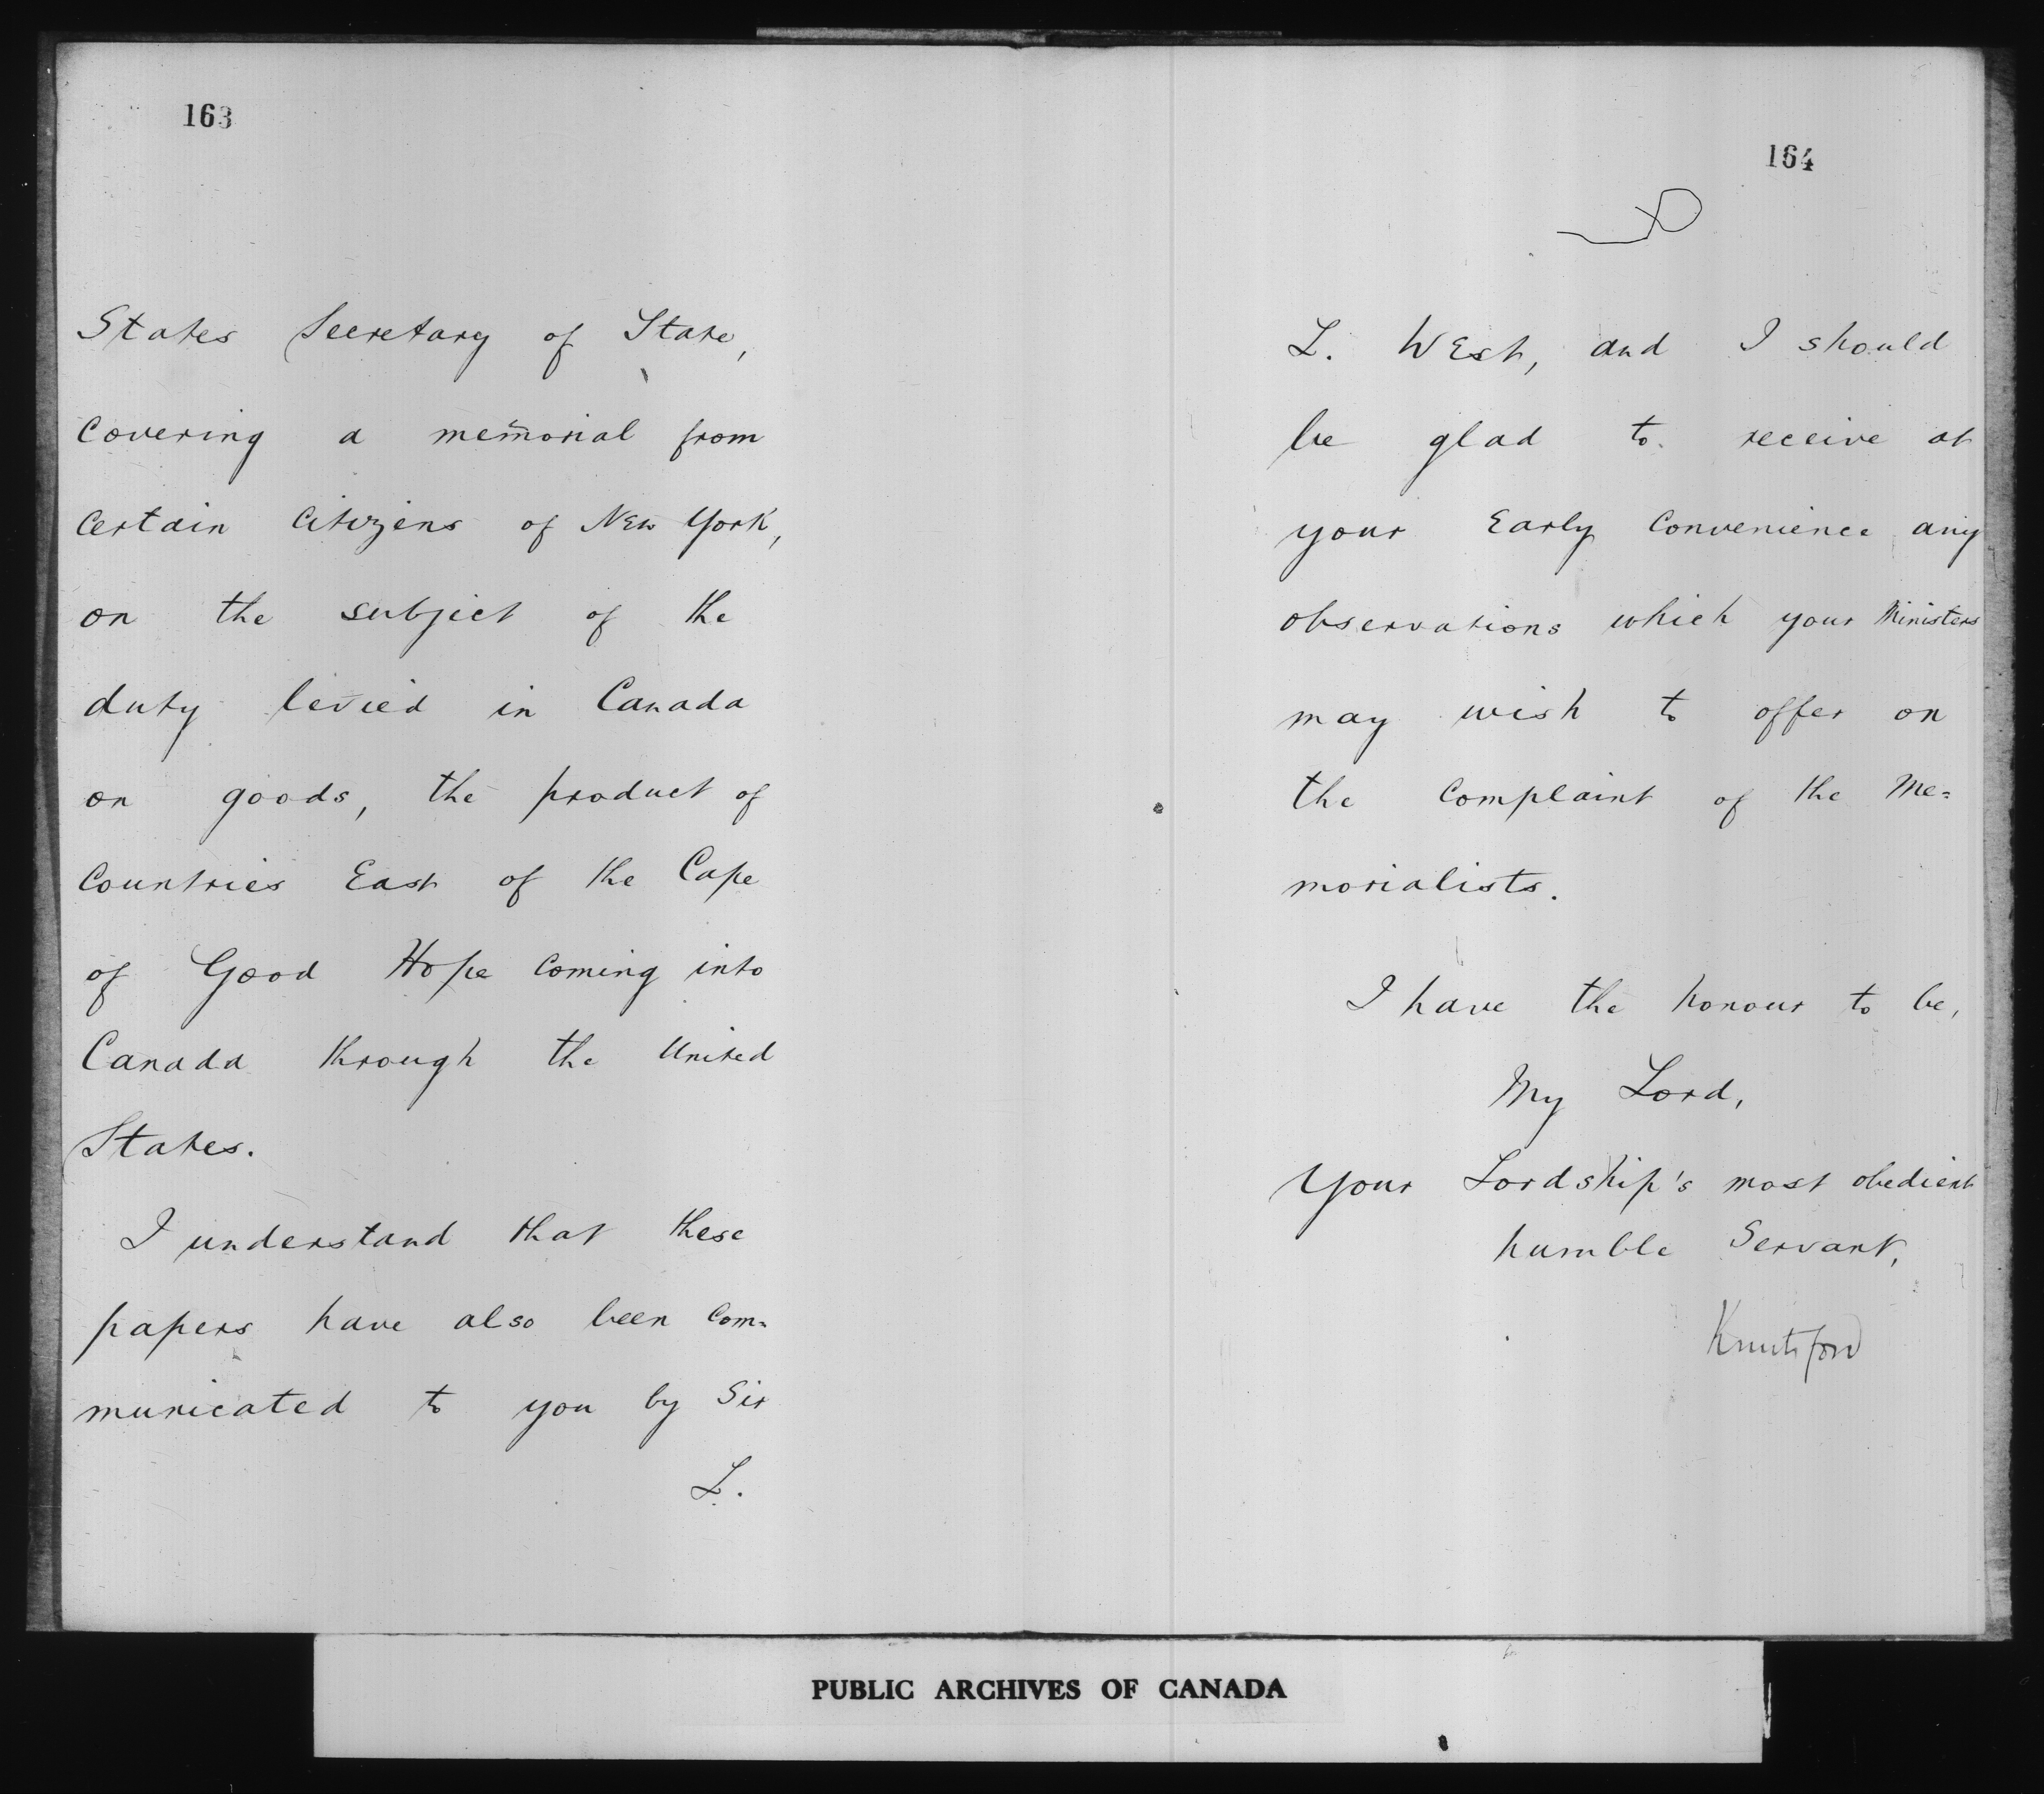 163
States Secretary of State,
Covering a memorial from
Certain Citizens of New York,
on the subject of the
duty levied in Canada
on goods, the product of
Countries East of the Cape
of Good Hope Coming into
Canada through the United
States.
I understand that these
papers have also been Com-
municated to you by Sir
L.
164
L. West, and I should
be glad to receive at
your Early Convenience any
observations which your Ministers
may wish to offer on
the Complaint of the Me=
morialists.
I have the honour to be,
My Lord,
Your Lordship's most obedient
humble Servant,
Knutsford
PUBLIC ARCHIVES OF CANADA